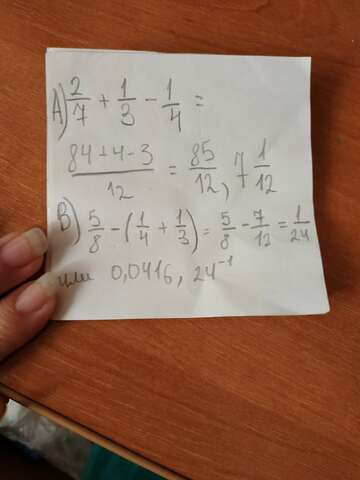 А) 2/7 + 1/3 - 1/4 =
(84+4-3)/12 = 85/12, 7 1/12
В) 5/8 - (1/4 + 1/3) = 5/8 - 7/12 = 1/24
или 0,0416, 24⁻¹